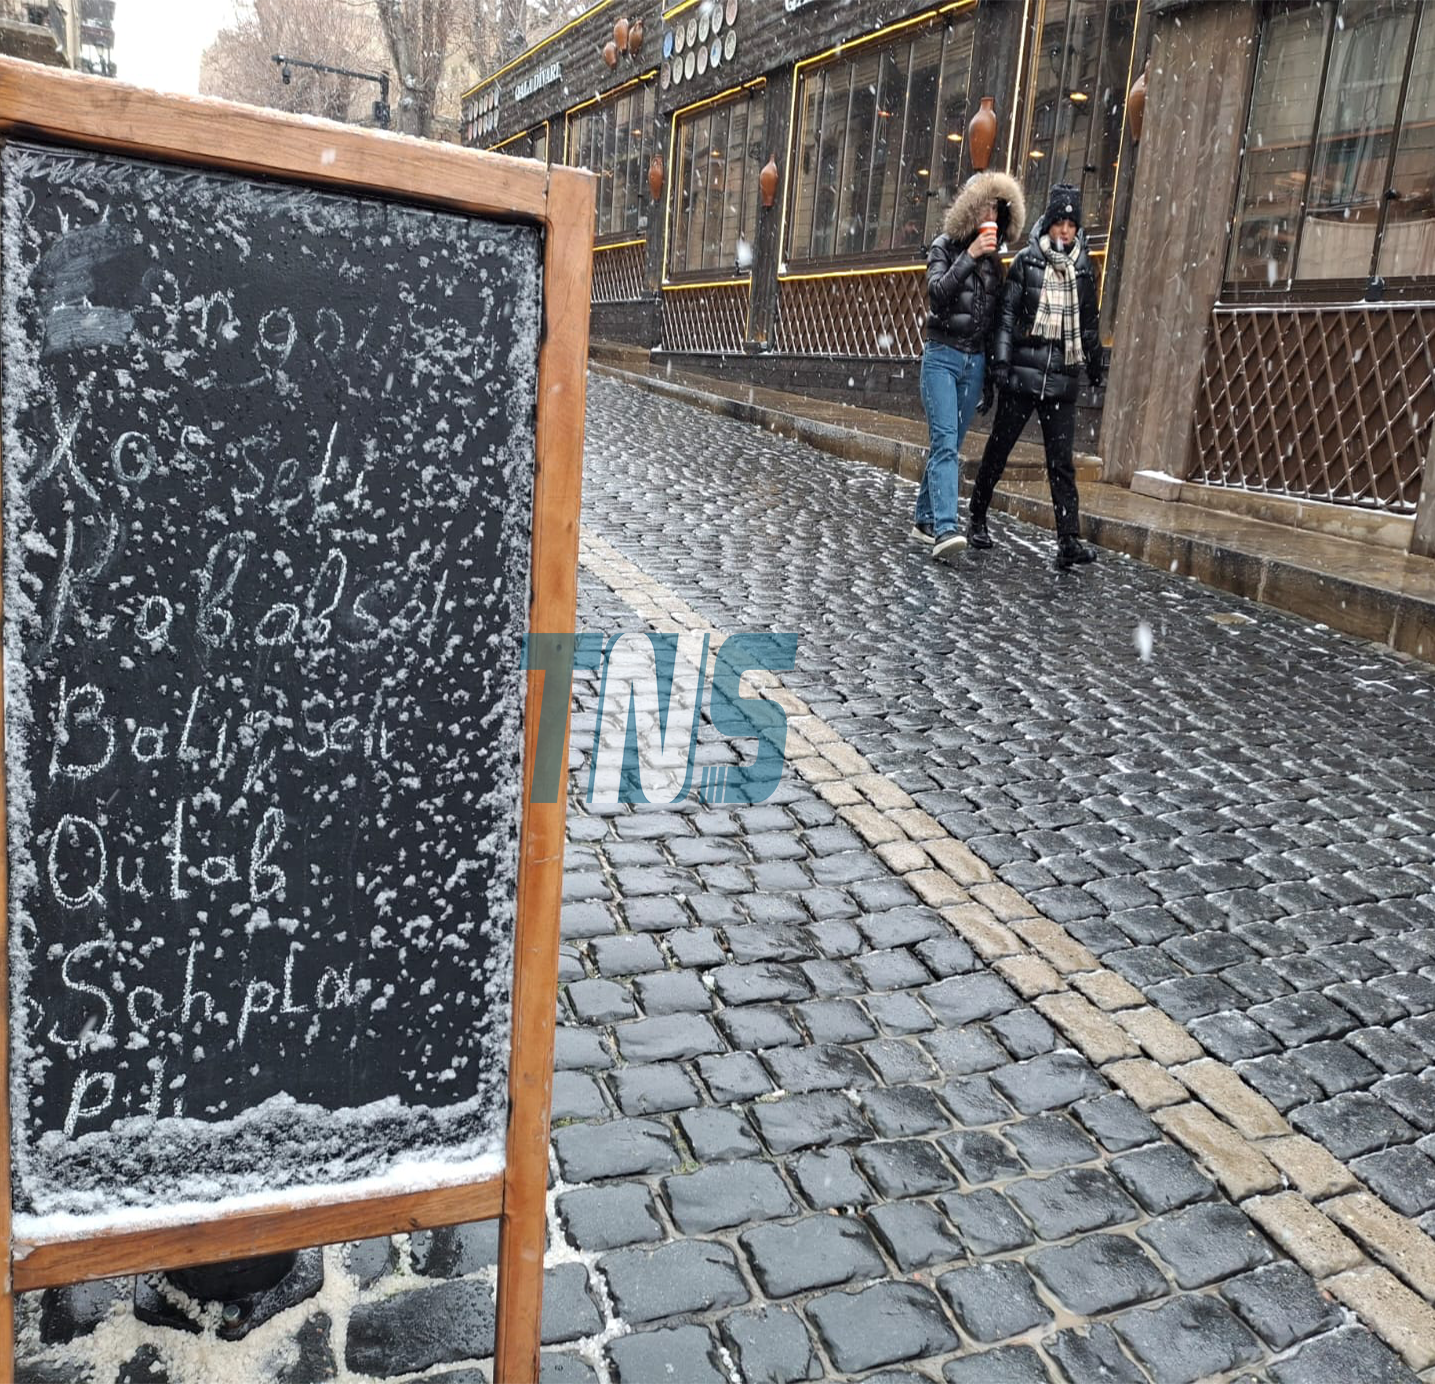 QALA DİVARI
Xas seti
Kababseti
Balıq seti
Qutab
Sahpla
piti
TNS